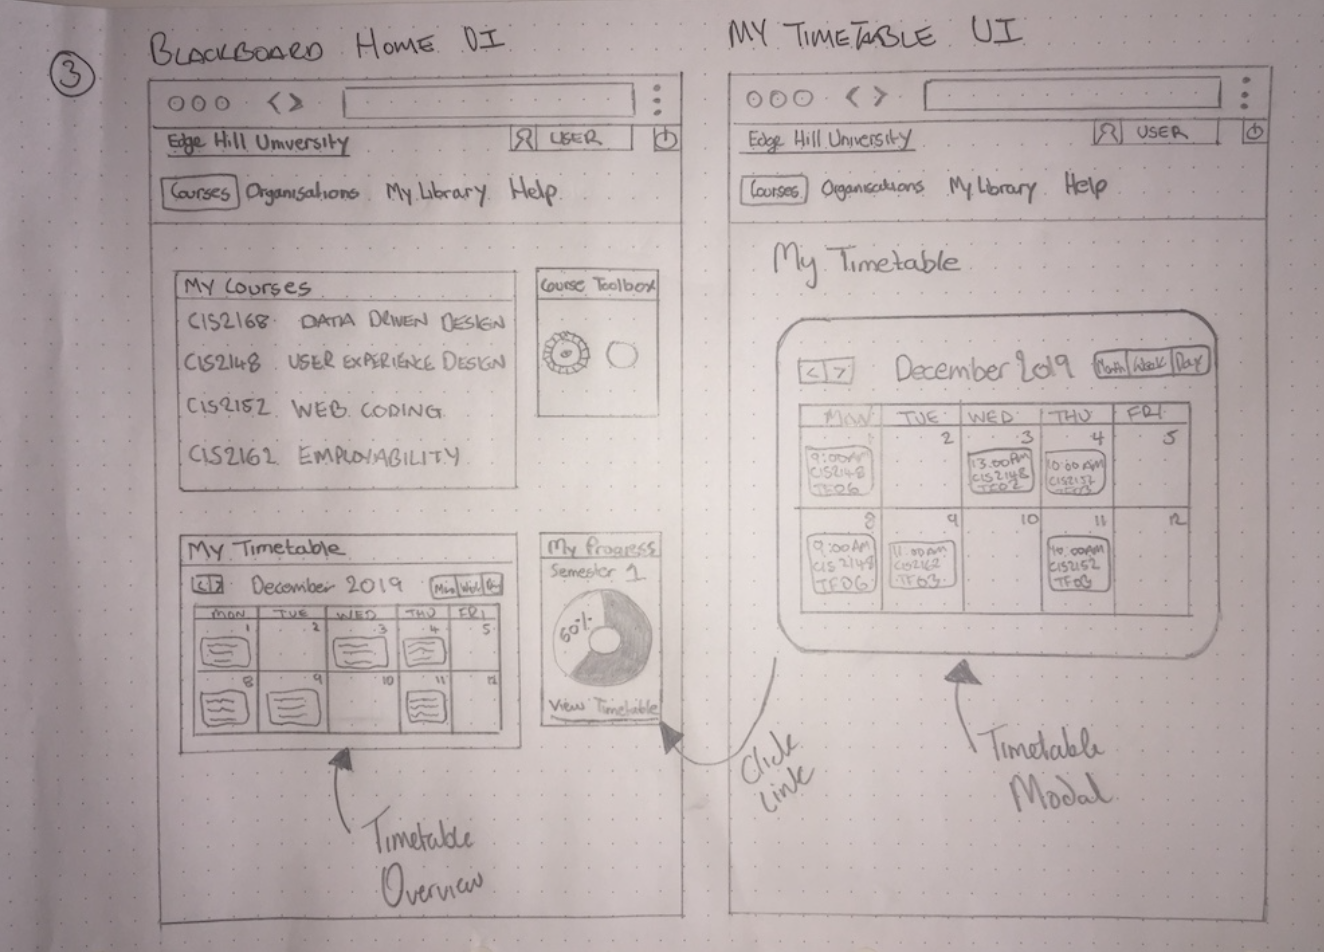 3
BLACKBOARD HOME UI
< >
Edge Hill University
USER
Courses Organisations My Library Help
My Courses
CIS2168 DATA DRIVEN DESIGN
CIS2148 USER EXPERIENCE DESIGN
CIS2152 WEB CODING
CIS2162 EMPLOYABILITY
Course Toolbox
My Timetable
< > December 2019
MON TUE WED THU FRI
1 2 3 4 5
8 9 10 11 12
My Progress
Semester 1
60%
View Timetable
Timetable
Overview
Click
Link
MY TIMETABLE UI
< >
Edge Hill University
USER
Courses Organisations My Library Help
My Timetable
< > December 2019 Month Week Day
MON TUE WED THU FRI
1 2 3 4 5
9:00AM
CIS2148
TF06
13:00PM
CIS2148
10:00AM
CIS2152
8 9 10 11 12
9:00AM
CIS2148
TF06
11:00AM
CIS2162
TF03
10:00AM
CIS2152
TF06
Timetable
Modal